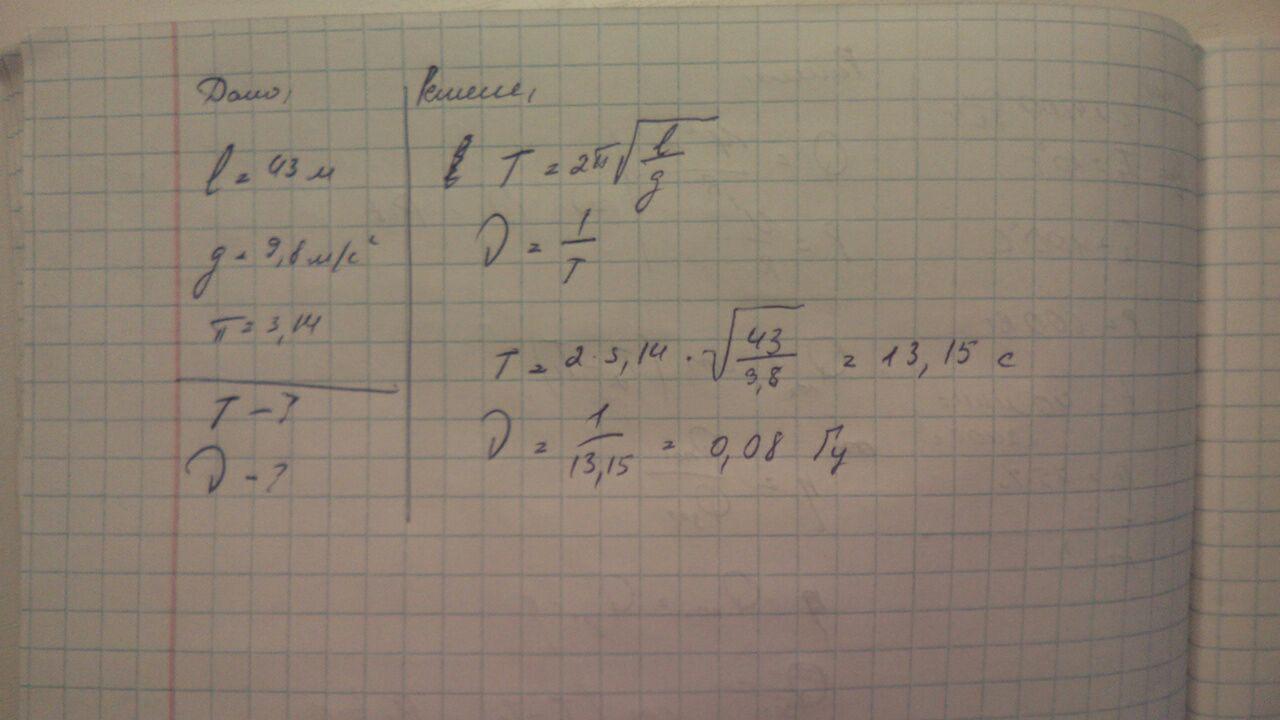 Дано, Решение,
l = 43 м
g = 9,8 м/с²
π = 3,14
T - ?
ν - ?
T = 2π√(l/g)
ν = 1/T
T = 2·3,14·√(43/9,8) = 13,15 с
ν = 1/13,15 = 0,08 Гц